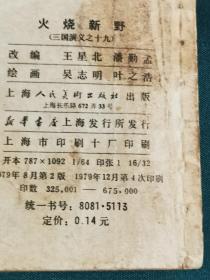 火烧新野
(三国演义之十九)
改 编 王星北 潘勤孟
绘 画 吴志明 叶之浩
上海人民美术出版社 出版
上海长乐路 672 弄33号
新华书店上海发行所发行
上海市印刷十厂印刷
开本 787×1092 1/64 印张 1 16/32
979年8月第2版 1979年12月第4次印刷
印数 325,001— 675,000
统一书号：8081·5113
定价：0.14 元